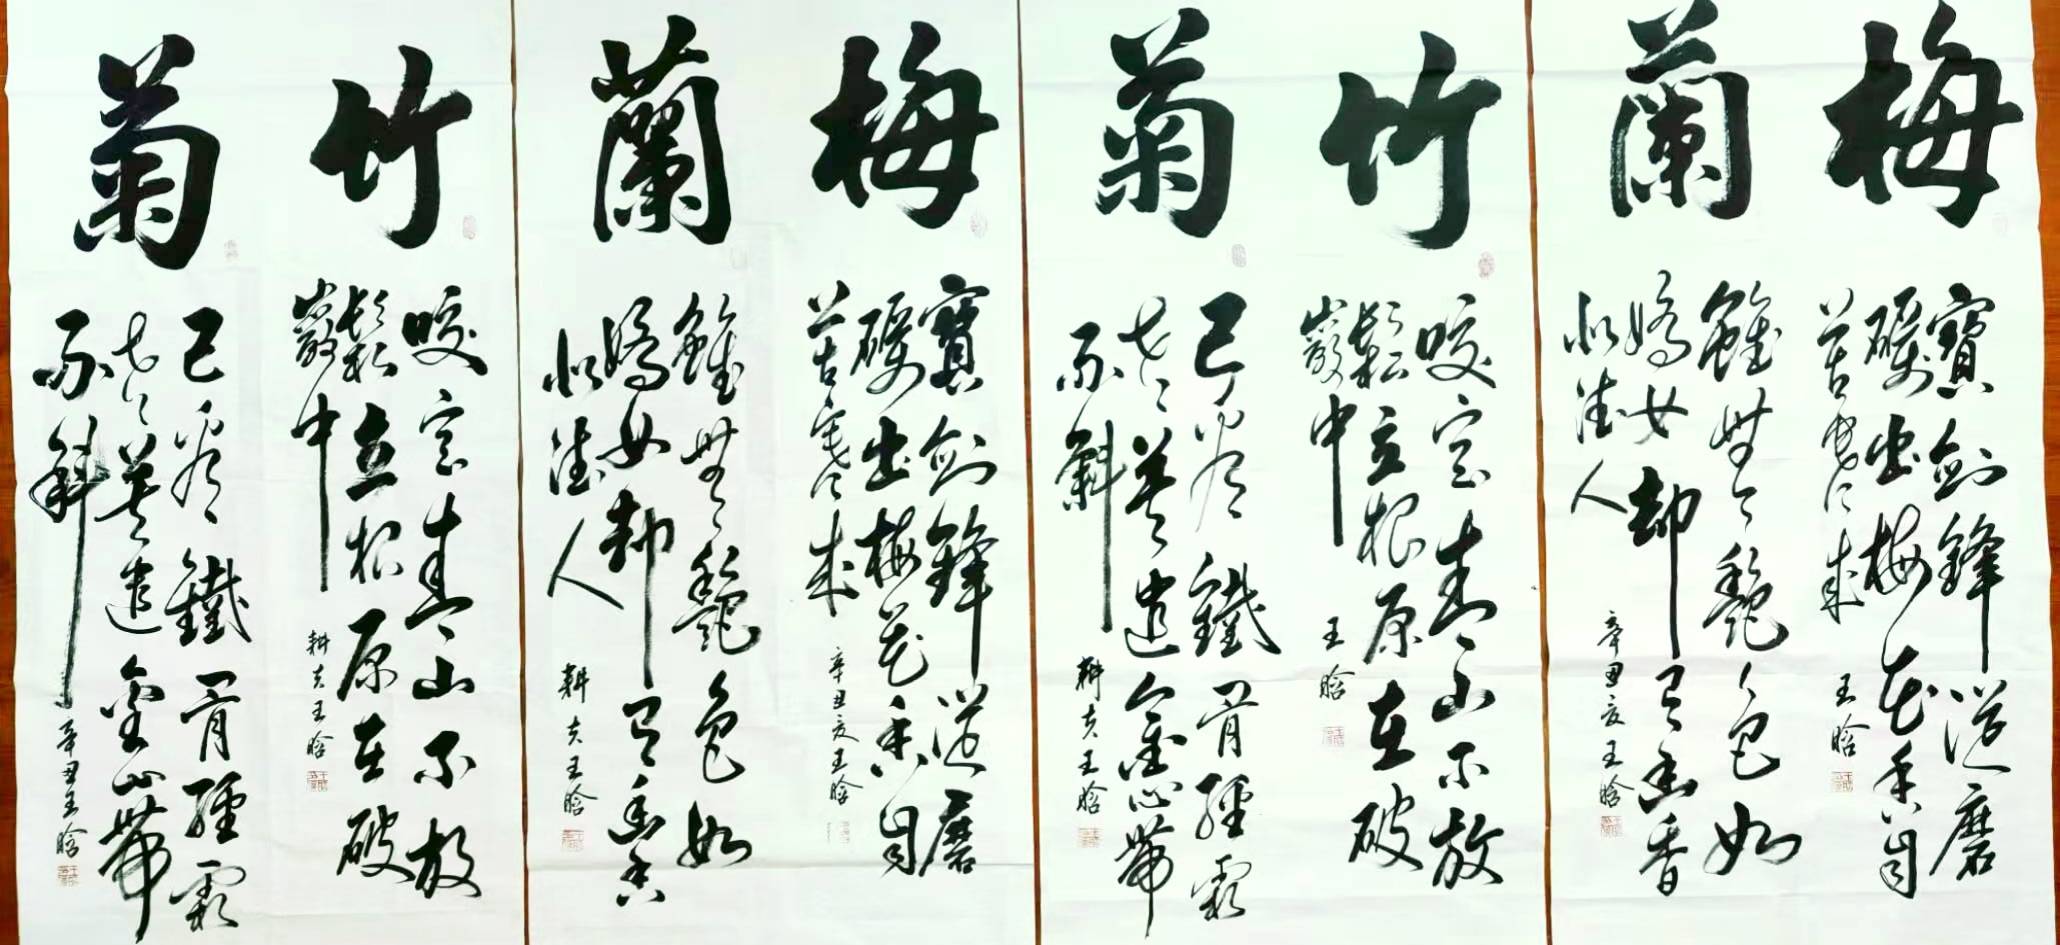 梅
寶劍鋒從磨
礪出梅花香自
苦寒來
王晗
蘭
雖無艷色如
嬌女却有幽香
似德人
辛丑夏王晗
竹
咬定青山不放
鬆立根原在破
巖中
王晗
菊
已看鐵骨經霜
老莫遣金心帶
雨斜
耕夫王晗
梅
寶劍鋒從磨
礪出梅花香自
苦寒來
辛丑夏王晗
蘭
雖無艷色如
嬌女却有幽香
似德人
耕夫王晗
竹
咬定青山不放
鬆立根原在破
巖中
耕夫王晗
菊
已看鐵骨經霜
老莫遣金心帶
雨斜
辛丑王晗